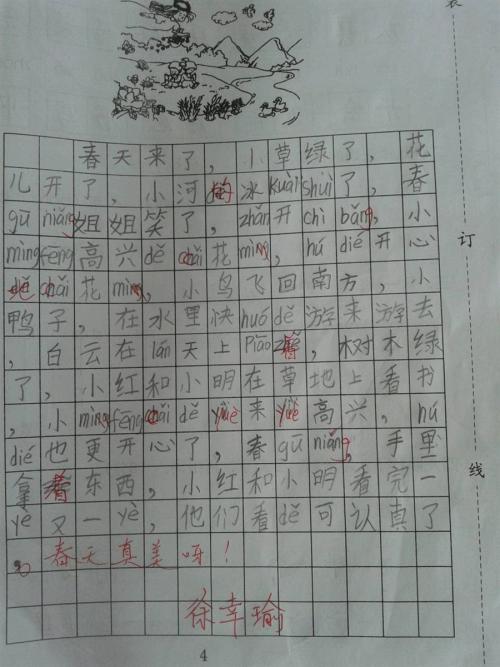 春天来了，小草绿了，花
儿开了，小河的冰kuài shuì了，春
gū niáng姐姐笑了，zhǎn开chì bǎng，小
mìng fēng高兴dě cǎi花mìng，hú dié开心
dě cǎi花mìng，小鸟飞回南方，小
鸭子，在水里快huó dě游来游去
，白云在lán天上Piāo着，树木绿
了，小红和小明在草地上看书
，小mìng fēng cǎi dě yüè来yüè高兴，hú
dié也更开心了，春gū niáng，手里
拿着东西，小红和小明看完一
yè又一yè，他们看dě可认真了
。春天真美呀！
徐幸瑜
4
装
订
线